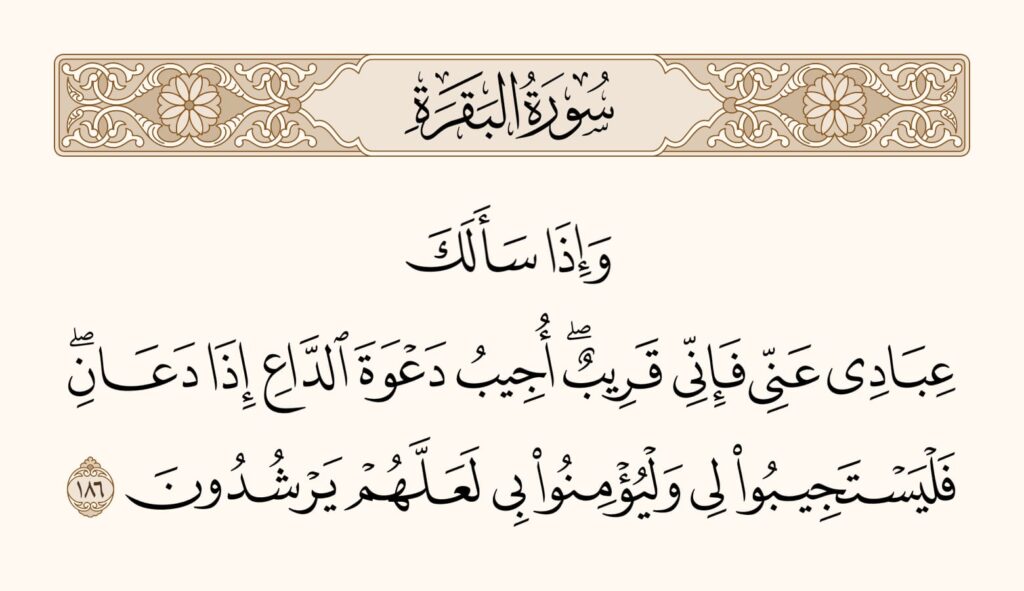 سُورَةُ البَقَرَةِ
وَإِذَا سَأَلَكَ
عِبَادِى عَنِّى فَإِنِّى قَرِيبٌۖ أُجِيبُ دَعْوَةَ ٱلدَّاعِ إِذَا دَعَانِۖ
فَلْيَسْتَجِيبُوا۟ لِى وَلْيُؤْمِنُوا۟ بِى لَعَلَّهُمْ يَرْشُدُونَ ١٨٦